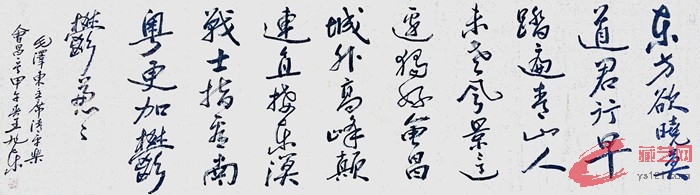 東方欲曉莫
道君行早
踏遍青山人
未老風景這
邊獨好會昌
城外高峰顛
連直接東溟
戰士指看南
粵更加鬱
鬱葱々
毛澤東主席清平樂
會昌 甲午
藏艺网